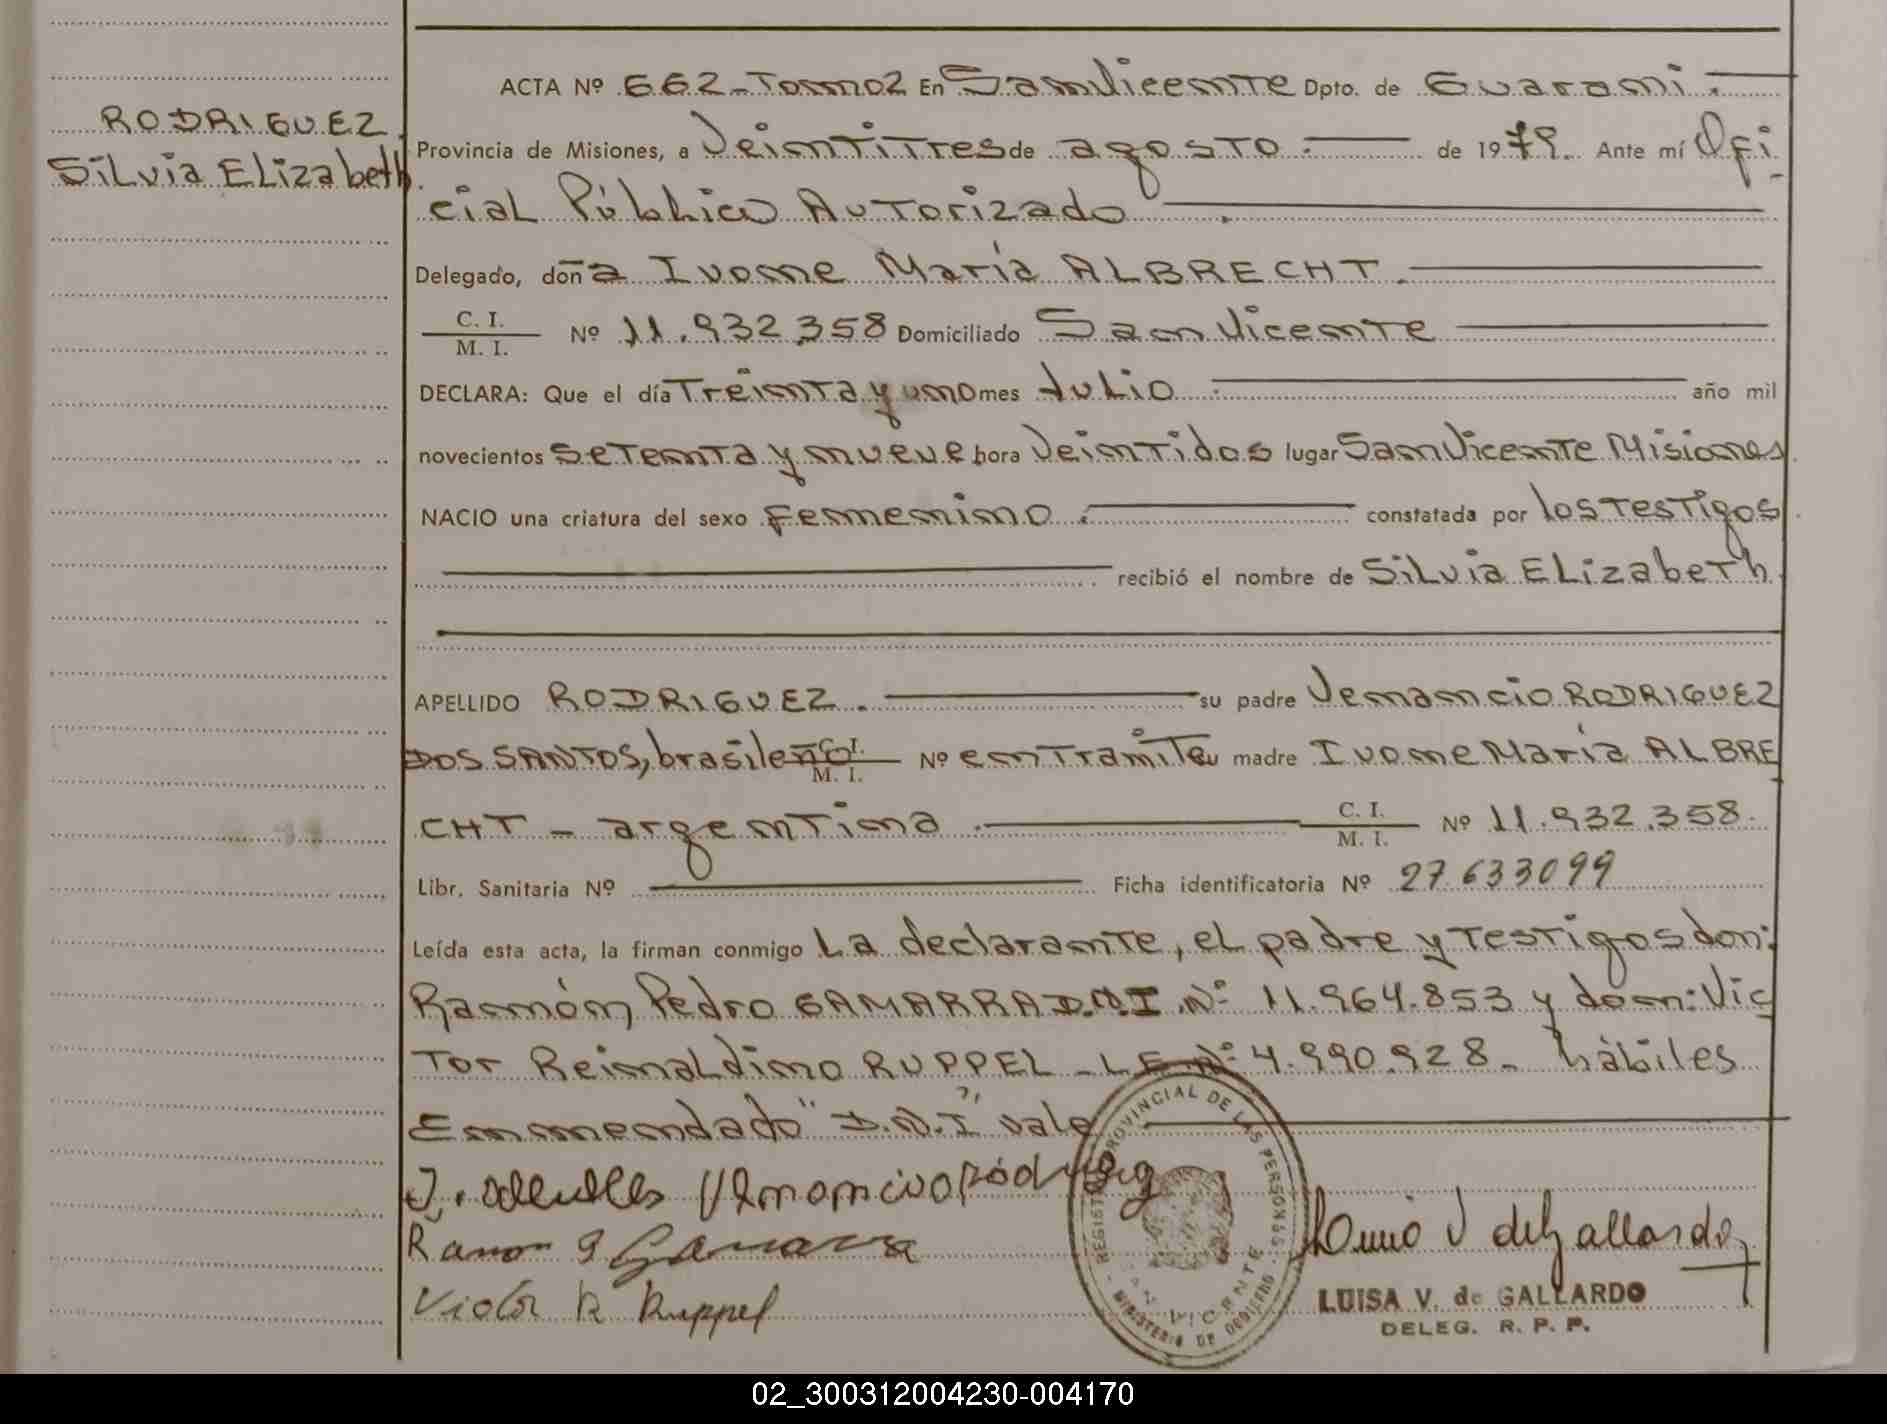 ACTA Nº 662 - Tomo 2 En San Vicente Dpto. de Guaraní.
RODRIGUEZ
Silvia Elizabeth.
Provincia de Misiones, a Veintitres de agosto. de 1979. Ante mí Ofi-
cial Público Autorizado.
Delegado, doña Ivone María ALBRECHT.
C. I.
M. I. Nº 11.932.358 Domiciliado San Vicente
DECLARA: Que el día Treinta y uno mes Julio. año mil
novecientos setenta y nueve hora Veintidos lugar San Vicente Misiones.
NACIO una criatura del sexo femenino. constatada por los testigos
recibió el nombre de Silvia Elizabeth.
APELLIDO RODRIGUEZ. su padre Venancio RODRIGUEZ
DOS SANTOS, brasileño C. I. M. I. Nº en Tramite su madre Ivone María ALBRE
CHT - argentina. C. I. M. I. Nº 11.932.358.
Libr. Sanitaria Nº Ficha identificatoria Nº 27.633099
Leída esta acta, la firman conmigo La declarante, el padre y testigos don:
Ramón Pedro GAMARRA D.N.I Nº 11.964.853 y don: Vic
tor Reinaldino RUPPEL - LE Nº 4.990.928 - hàbiles
Enmendado "D.N.I" vale
Venancio Rodriguez
Ramon P Gamarra
Victor R Ruppel
REGISTRO PROVINCIAL DE LAS PERSONAS - MINISTERIO DE GOBIERNO
SAN VICENTE
V de Gallardo
LUISA V. de GALLARDO
DELEG. R. P. P.
02_300312004230-004170